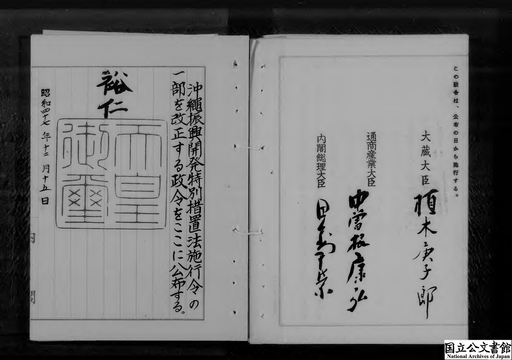 沖繩振興開発特別措置法施行令の
一部を改正する政令をここに公布する。
裕仁
天皇
御璽
昭和四十七年十二月十五日
内閣
この政令は、公布の日から施行する。
大蔵大臣 植木庚子郎
通商産業大臣 中曽根康弘
内閣総理大臣 田中角榮
国立公文書館
National Archives of Japan